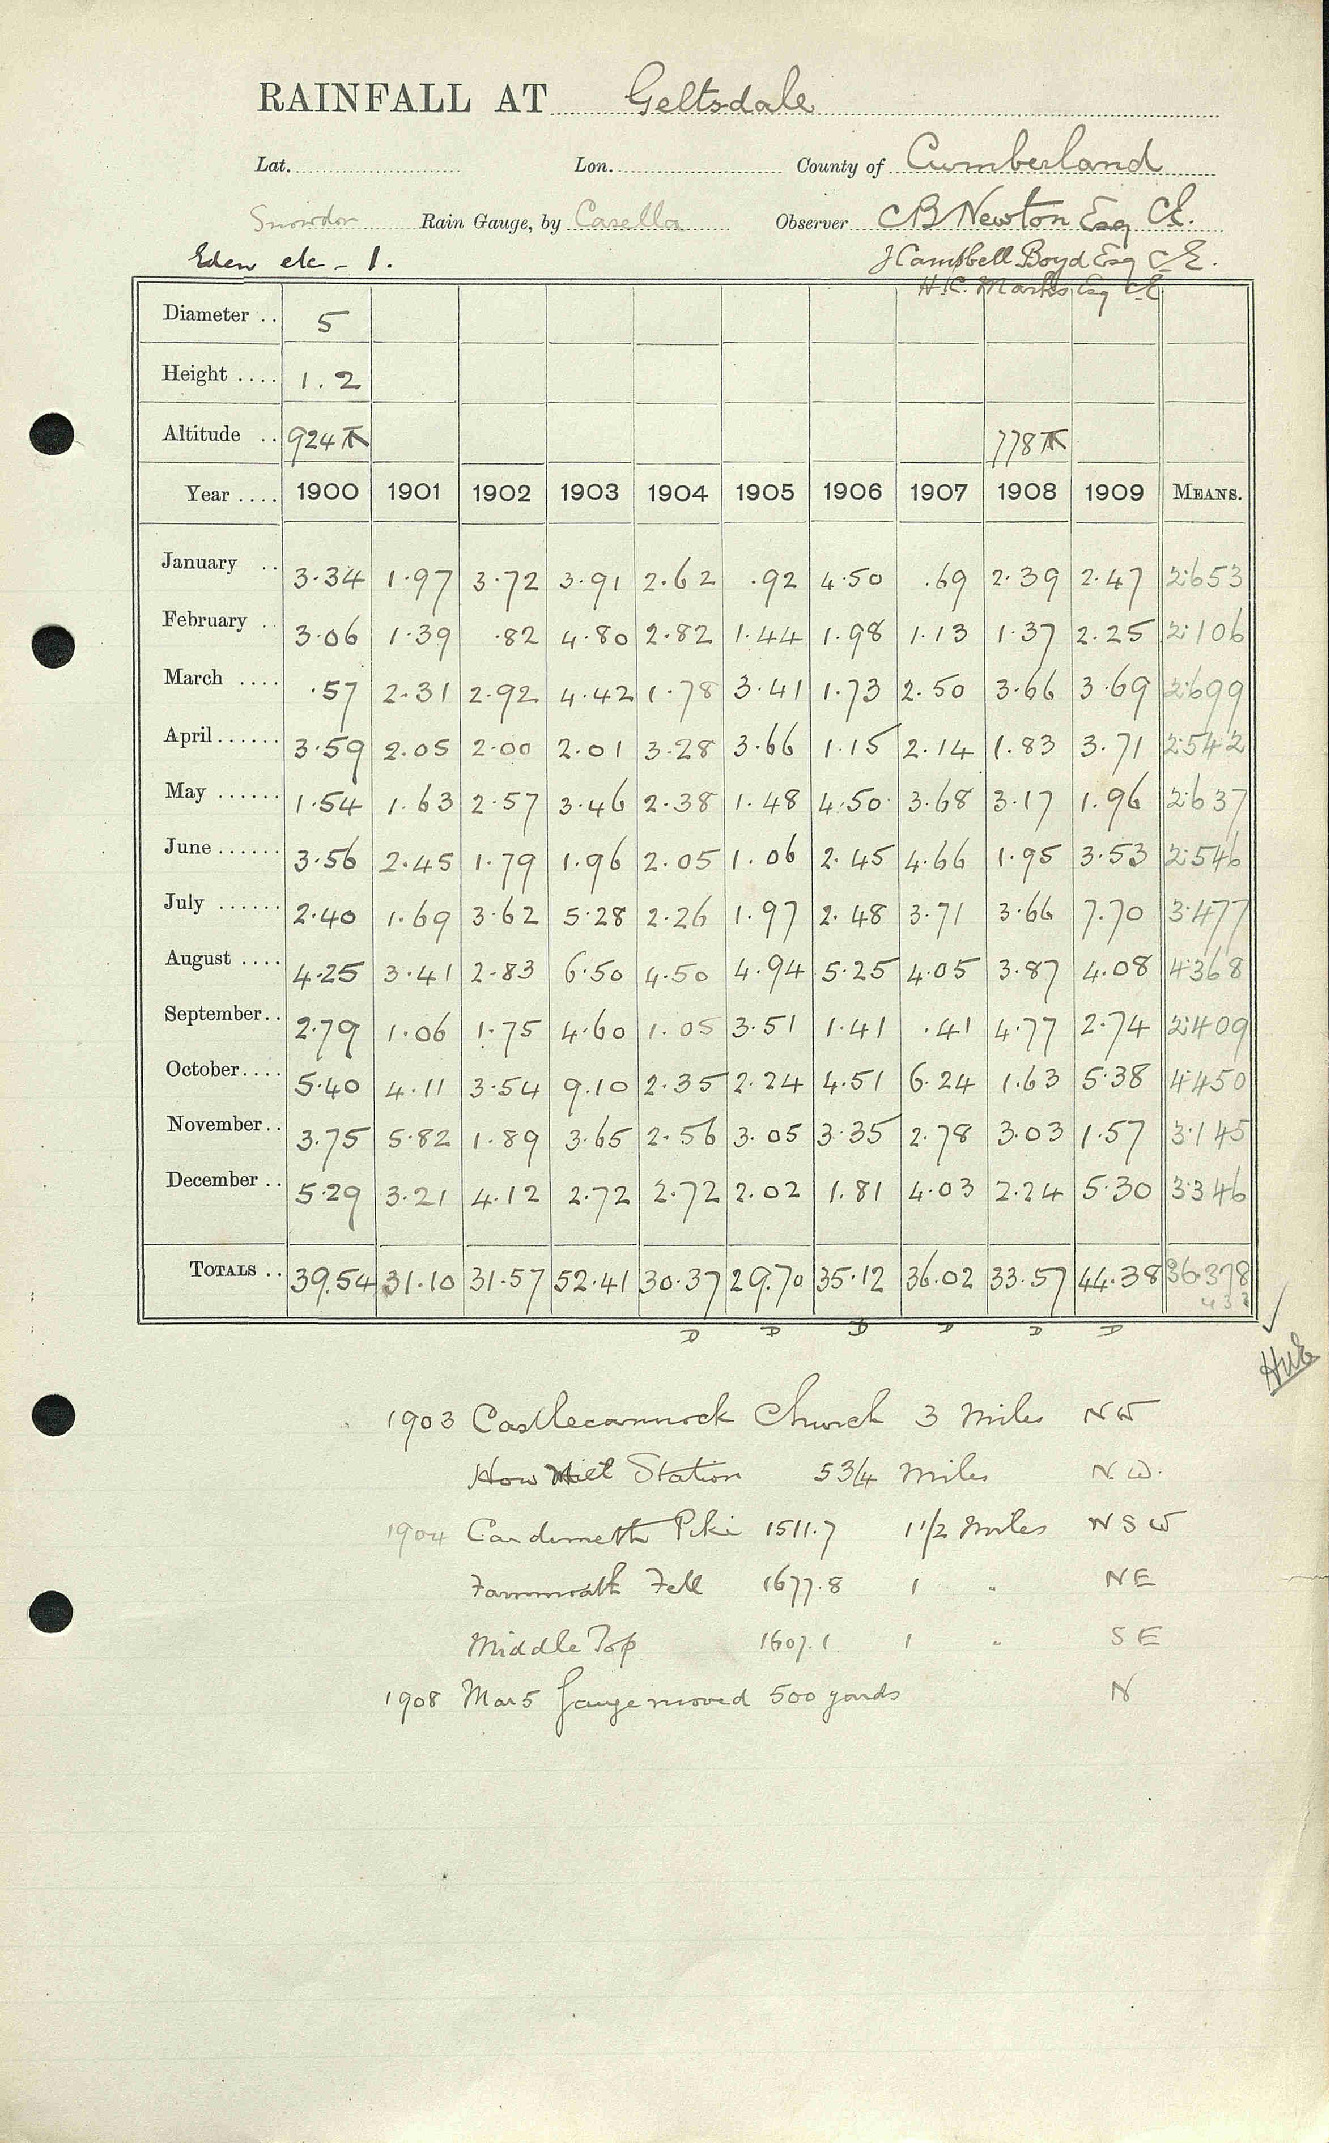 RAINFALL AT Geltsdale
Lat. Lon. County of Cumberland
Snowdon Rain Gauge, by Casella Observer CB Newton Esq CE.
Eden etc - 1. J Campbell Boyd Esq C.E.
H.C. Marks Esq CE
Diameter .. 5
Height .... 1.2
Altitude .. 924 ft 778 ft
Year .... 1900 1901 1902 1903 1904 1905 1906 1907 1908 1909 MEANS.
January .. 3.34 1.97 3.72 3.91 2.62 .92 4.50 .69 2.39 2.47 2.653
February .. 3.06 1.39 .82 4.80 2.82 1.44 1.98 1.13 1.37 2.25 2.106
March .... .57 2.31 2.92 4.42 1.78 3.41 1.73 2.50 3.66 3.69 2.699
April...... 3.59 2.05 2.00 2.01 3.28 3.66 1.15 2.14 1.83 3.71 2.542
May ...... 1.54 1.63 2.57 3.46 2.38 1.48 4.50 3.68 3.17 1.96 2.637
June...... 3.56 2.45 1.79 1.96 2.05 1.06 2.45 4.66 1.95 3.53 2.546
July ...... 2.40 1.69 3.62 5.28 2.26 1.97 2.48 3.71 3.66 7.70 3.477
August .... 4.25 3.41 2.83 6.50 4.50 4.94 5.25 4.05 3.87 4.08 4.368
September.. 2.79 1.06 1.75 4.60 1.05 3.51 1.41 .41 4.77 2.74 2.409
October.... 5.40 4.11 3.54 9.10 2.35 2.24 4.51 6.24 1.63 5.38 4.450
November.. 3.75 5.82 1.89 3.65 2.56 3.05 3.35 2.78 3.03 1.57 3.145
December .. 5.29 3.21 4.12 2.72 2.72 2.02 1.81 4.03 2.24 5.30 3.346
TOTALS .. 39.54 31.10 31.57 52.41 30.37 29.70 35.12 36.02 33.57 44.38 36.378
D D D D D D
1903 Castlecarrock Church 3 Miles NW
How Mill Station 5 3/4 Miles N.W.
1904 Pike 1511.7 1 1/2 Miles N S W
Fell 1677.8 1 " NE
Middle Top 1607.1 1 " S E
1908 Mar 5 Gauge moved 500 yards N